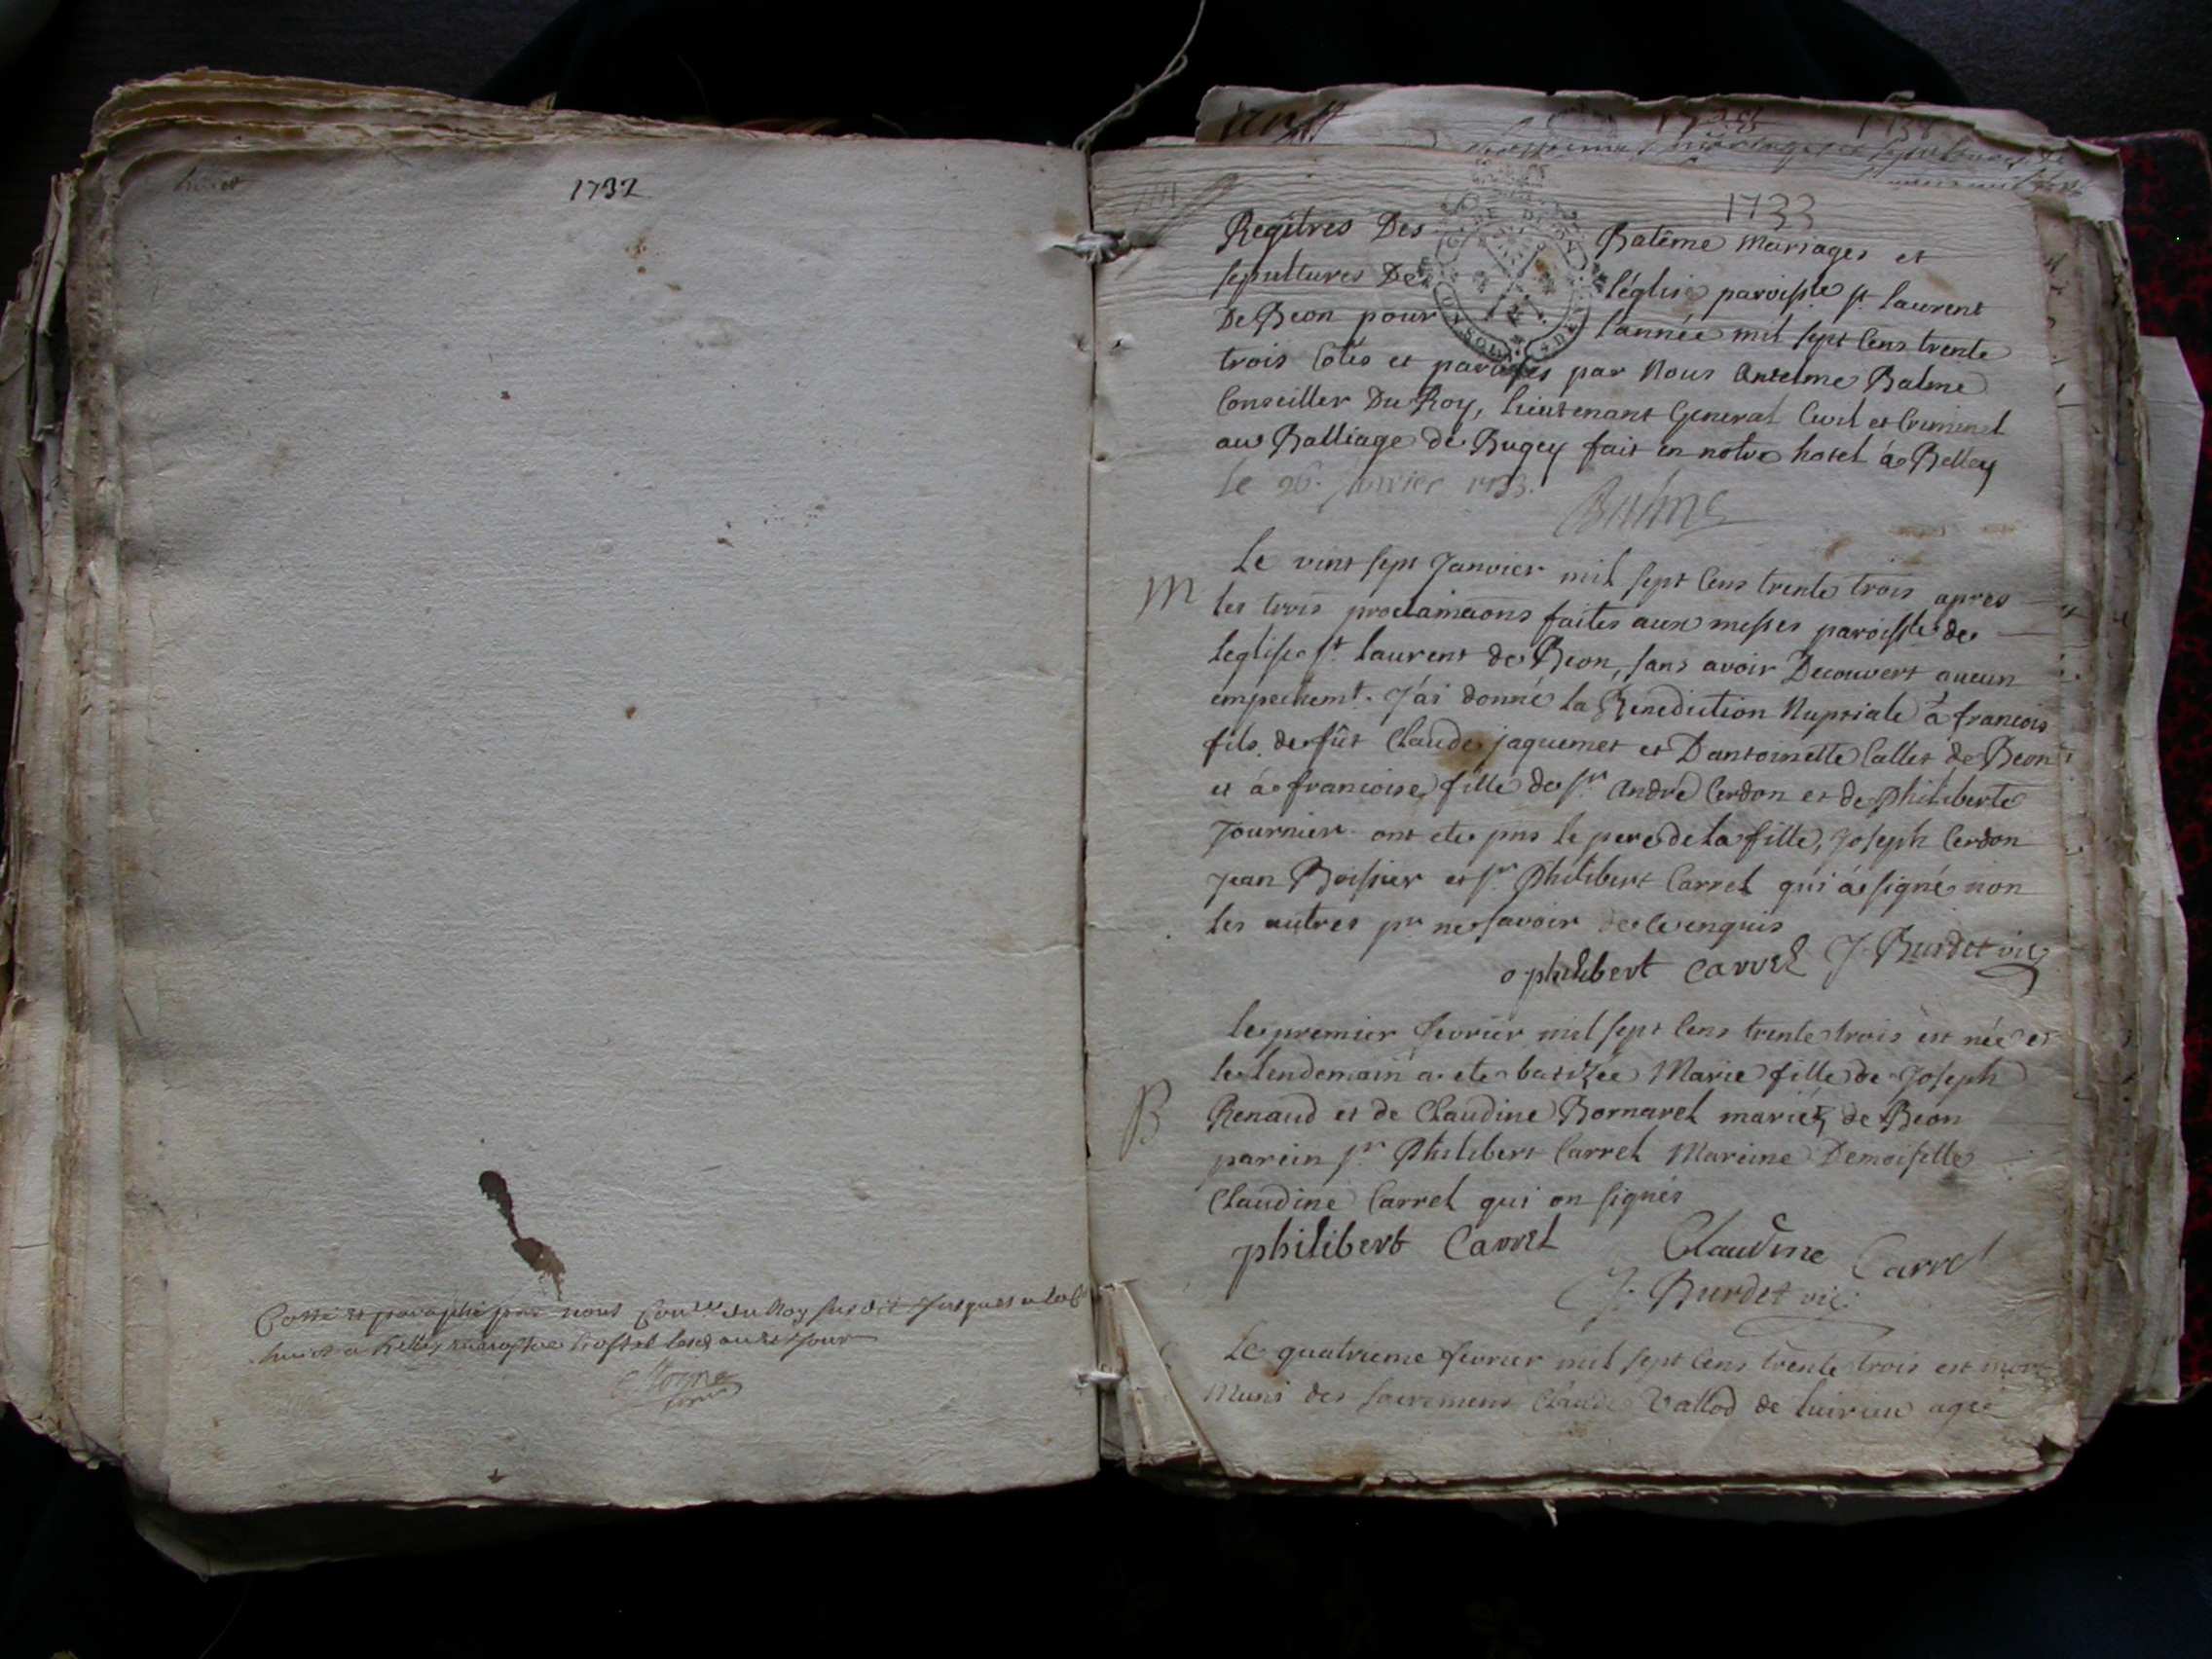 huict
1732
Cotté et paraphé par nous Con.er du Roy susdit jusques a
huict a Belley en nostre hostel lesd an et jour
1733
Regîtres Des Batême Mariages et
sepultures De l'église paroissle st. laurent
De Beon pour l'année mil sept Cens trente
trois Cotés et paraphés par Nous Antelme Balme
Conseiller Du Roy, lieutenant General Civil et Criminel
au Balliage de Bugey fait en notre hotel à Belley
le 26. janvier 1733.
Balme
Le vint sept Janvier mil sept Cens trente trois apres
M
les trois proclamaons faites aux messes paroissles de
leglise st. laurent de Beon, sans avoir Decouvert aucun
empechemt. J'ai donné la Benediction Nuptiale à francois
fils de fût Claude jaquemet et D'antoinette Callet de Beon
et à francoise fille de sr. André Cerdon et de philiberte
Tournier ont ete pns le pere de la fille, Joseph Cerdon
Jean Boissier et sr. Philibert Carrel qui à signé non
les autres pr ne savoir de ce enquis
philibert Carrel J. Burdet vic
le premier fevrier mil sept Cens trente trois est née et
le lendemain a ete batizée Marie fille de Joseph
B
Renaud et de Claudine Bornarel mariez de Beon
parein sr. Philibert Carrel Mareine Demoiselle
Claudine Carrel qui on signés
philibert Carrel Claudine Carrel
J. Burdet vic.
Le quatrieme fevrier mil sept Cens trente trois est mort
Muni des sacremens Claude Vallod de luirieu agé